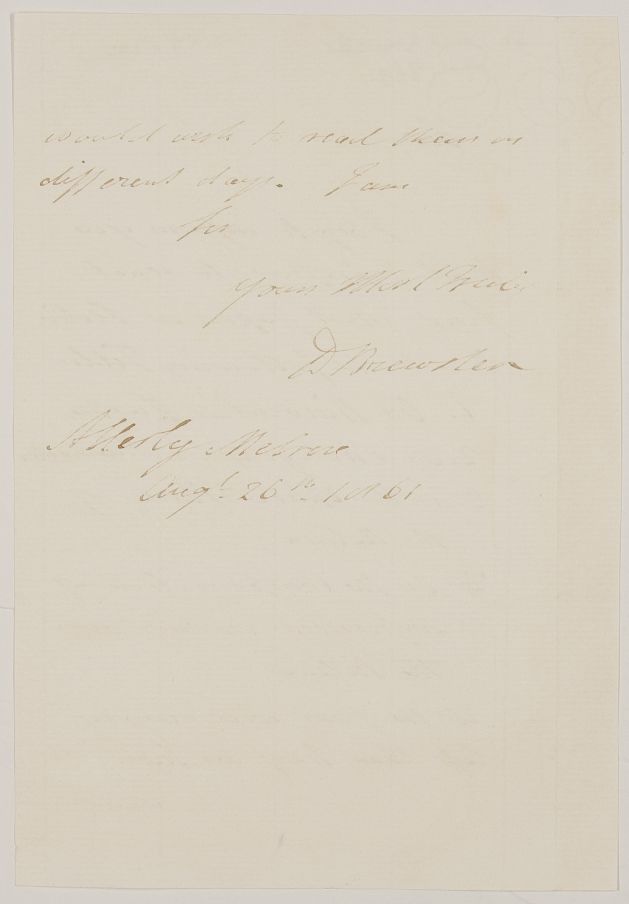 would wish to read them on
different days. I am
Sir
Yours Most Truly
D Brewster
Allerly Melrose
Augt. 26th 1861